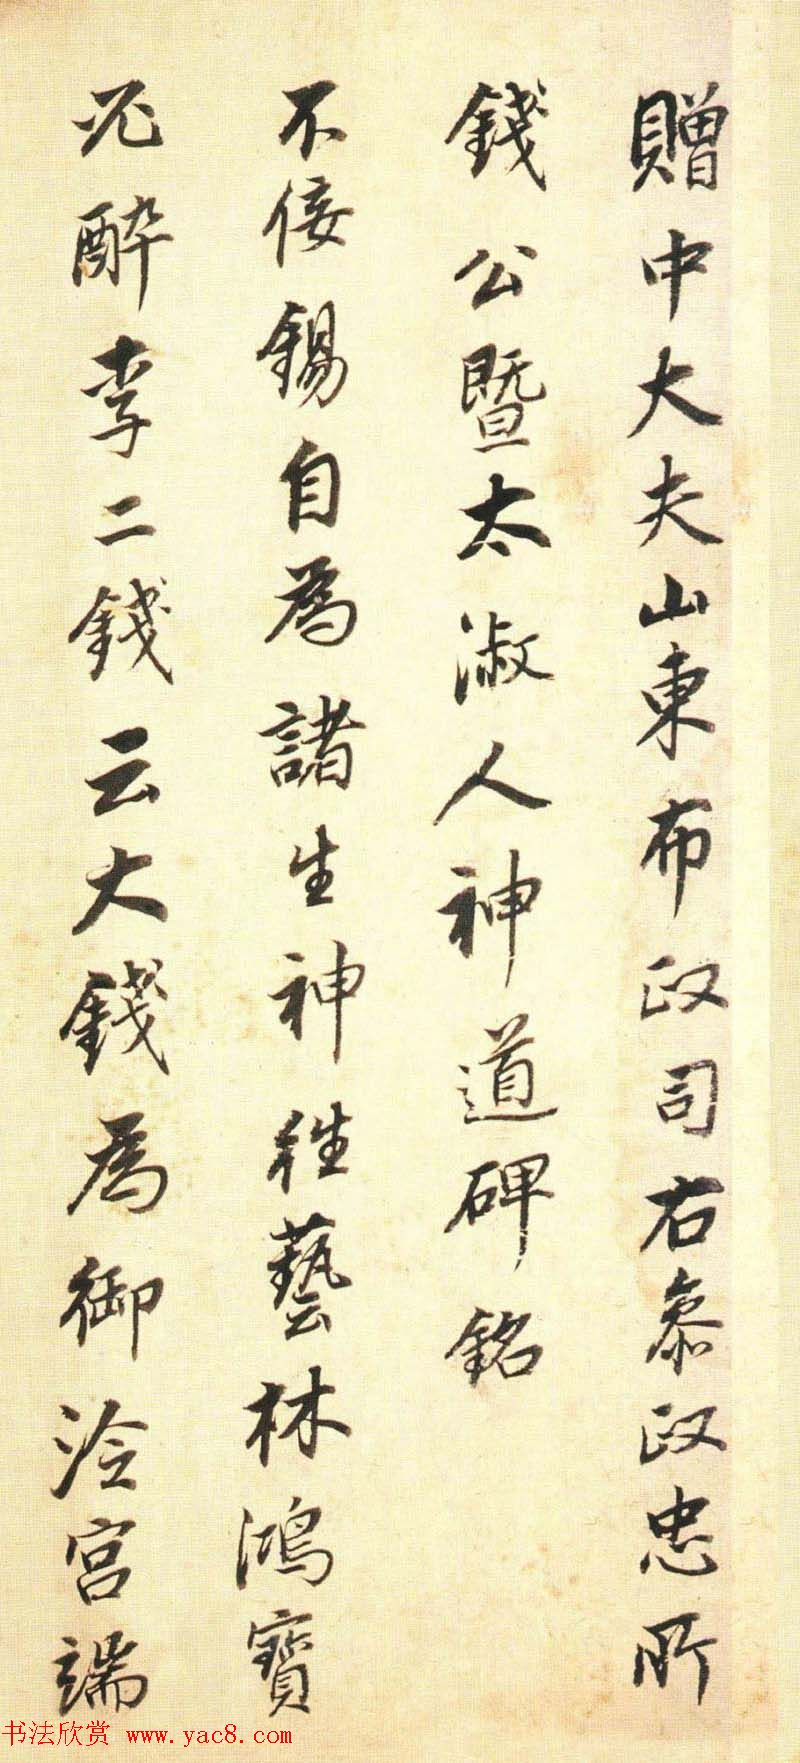 贈中大夫山東布政司右叅政忠所
錢公暨太淑人神道碑銘
不佞錫自為諸生神往藝林鴻寶
必醉李二錢云大錢為御冷宮端
书法欣赏 www.yac8.com